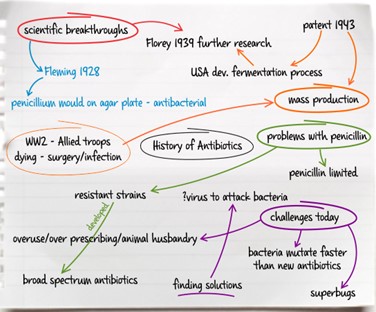 scientific breakthroughs
patent 1943
Florey 1939 further research
Fleming 1928
USA dev. fermentation process
penicillium would on agar plate - antibacterial
mass production
WW2 - Allied troops
dying - surgery/infection
History of Antibiotics
problems with penicillin
penicillin limited
resistant strains
?virus to attack bacteria
developed
challenges today
overuse/over prescribing/animal husbandry
bacteria mutate faster
than new antibiotics
broad spectrum antibiotics
finding solutions
superbugs